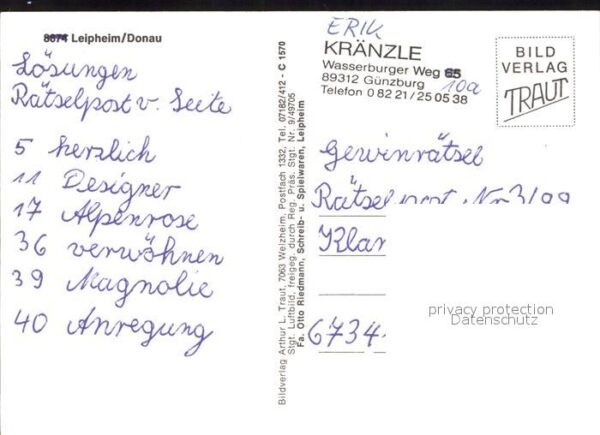 8874 Leipheim/Donau
Lösungen
Rätselpost v. Seite
5 herzlich
11 Designer
17 Alpenrose
36 verwöhnen
39 Magnolie
40 Anregung
Bildverlag Arthur L. Traut, 7063 Welzheim, Postfach 1332, Tel. 07182/412 - C 1570
Stgt. Luftbild, freigeg. durch Reg. Präs. Stgt. Nr. 9/49705
Fa. Otto Riedmann, Schreib- u. Spielwaren, Leipheim
ERIK
KRÄNZLE
Wasserburger Weg 65 10a
89312 Günzburg
Telefon 0 82 21/25 05 38
BILD
VERLAG
TRAUT
Gewinrätsel
Klar
6734
privacy protection
Datenschutz